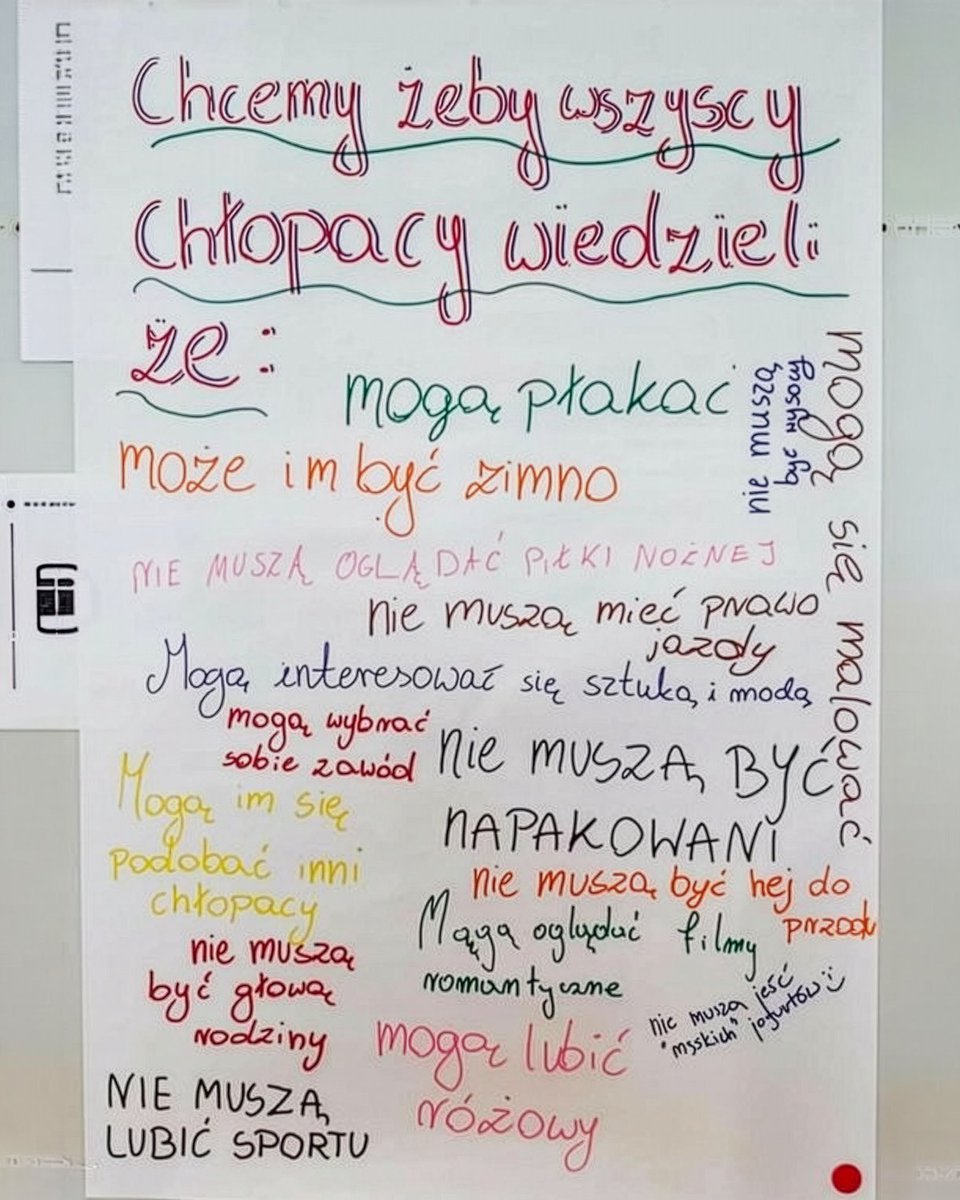 Chcemy żeby wszyscy
chłopacy wiedzieli
że:
mogą płakać
nie muszą
być wysocy
mogą się malować
może im być zimno
NIE MUSZĄ OGLĄDAĆ PIŁKI NOŻNEJ
nie muszą mieć prawo
jazdy
Mogą interesować się sztuką i modą
mogą wybrać
sobie zawód
nie MUSZĄ BYĆ
NAPAKOWANI
Mogą im się
podobać inni
chłopacy
nie muszą być hej do
przodu
Mągą oglądać filmy
romantyczne
nie muszą
być głową
rodziny
nie muszą jeść
"męskich" jogurtów :)
mogą lubić
różowy
NIE MUSZĄ
LUBIĆ SPORTU